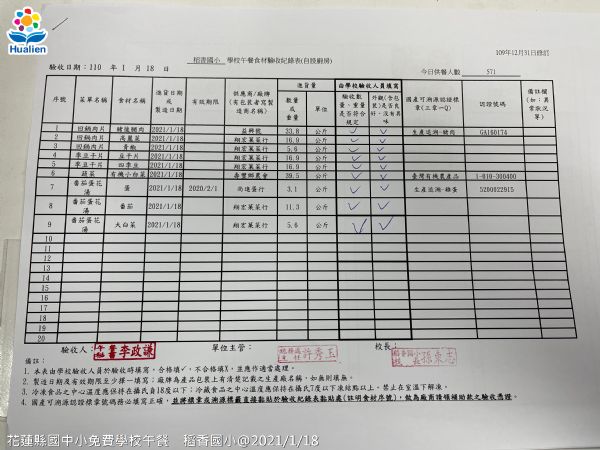 Hualien
稻香國小 學校午餐食材驗收紀錄表(自設廚房)
109年12月31日修訂
驗收日期:110 年 1 月 18 日
今日供餐人數: 571
序號 菜單名稱 食材名稱 進貨日期或製造日期 有效期限 供應商/廠牌(有包裝者需寫製造商名稱) 進貨量 數量或重量 單位 由學校驗收人員填寫 驗收數量、重量是否符合規定 外觀(含包裝)是否良好、沒有異味 國產可溯源認證標章(三章一Q) 認證號碼 備註欄(如:異常狀況等)
1 回鍋肉片 豬後腿肉 2021/1/18 益師號 33.8 公斤 ✓ ✓ 生產追溯-豬肉 GA160174
2 回鍋肉片 高麗菜 2021/1/18 翔宏蔬菜行 16.9 公斤 ✓ ✓
3 回鍋肉片 青椒 2021/1/18 翔宏蔬菜行 5.6 公斤 ✓ ✓
4 季豆干片 豆干片 2021/1/18 翔宏蔬菜行 16.9 公斤 ✓ ✓
5 季豆干片 四季豆 2021/1/18 翔宏蔬菜行 16.9 公斤 ✓ ✓
6 蔬菜 有機小白菜 2021/1/18 壽豐鄉農會 39.5 公斤 ✓ ✓ 臺灣有機農產品 1-010-300400
7 番茄蛋花湯 蛋 2021/1/18 2020/2/1 尚進蛋行 3.1 公斤 ✓ ✓ 生產追溯-雞蛋 5200022915
8 番茄蛋花湯 番茄 2021/1/18 翔宏蔬菜行 11.3 公斤 ✓ ✓
9 番茄蛋花湯 大白菜 2021/1/18 翔宏蔬菜行 5.6 公斤 ✓ ✓
10
11
12
13
14
15
16
17
18
19
20
驗收人: 午餐秘書 李政謙 單位主管: 總務處主任 許秀玉 校長: 稻香國小校長 孫東志
備註:
1. 本表由學校驗收人員於驗收時填寫,合格填✓,不合格填X,並應作適當處理。
2. 製造日期及有效期限至少擇一填寫;廠牌為產品包裝上有清楚記載之生產廠名稱,如無則填無。
3. 冷凍食品之中心溫度應保持在攝氏負18度以下;冷藏食品之中心溫度應保持在攝氏7度以下凍結點以上,禁止在室溫下解凍。
4. 國產可溯源認證標章號碼務必填寫正確,並將標章或溯源標籤直接黏貼於驗收紀錄表黏貼處(註明食材序號),做為廠商請領補助款之驗收憑證。
花蓮縣國中小免費學校午餐 稻香國小@2021/1/18